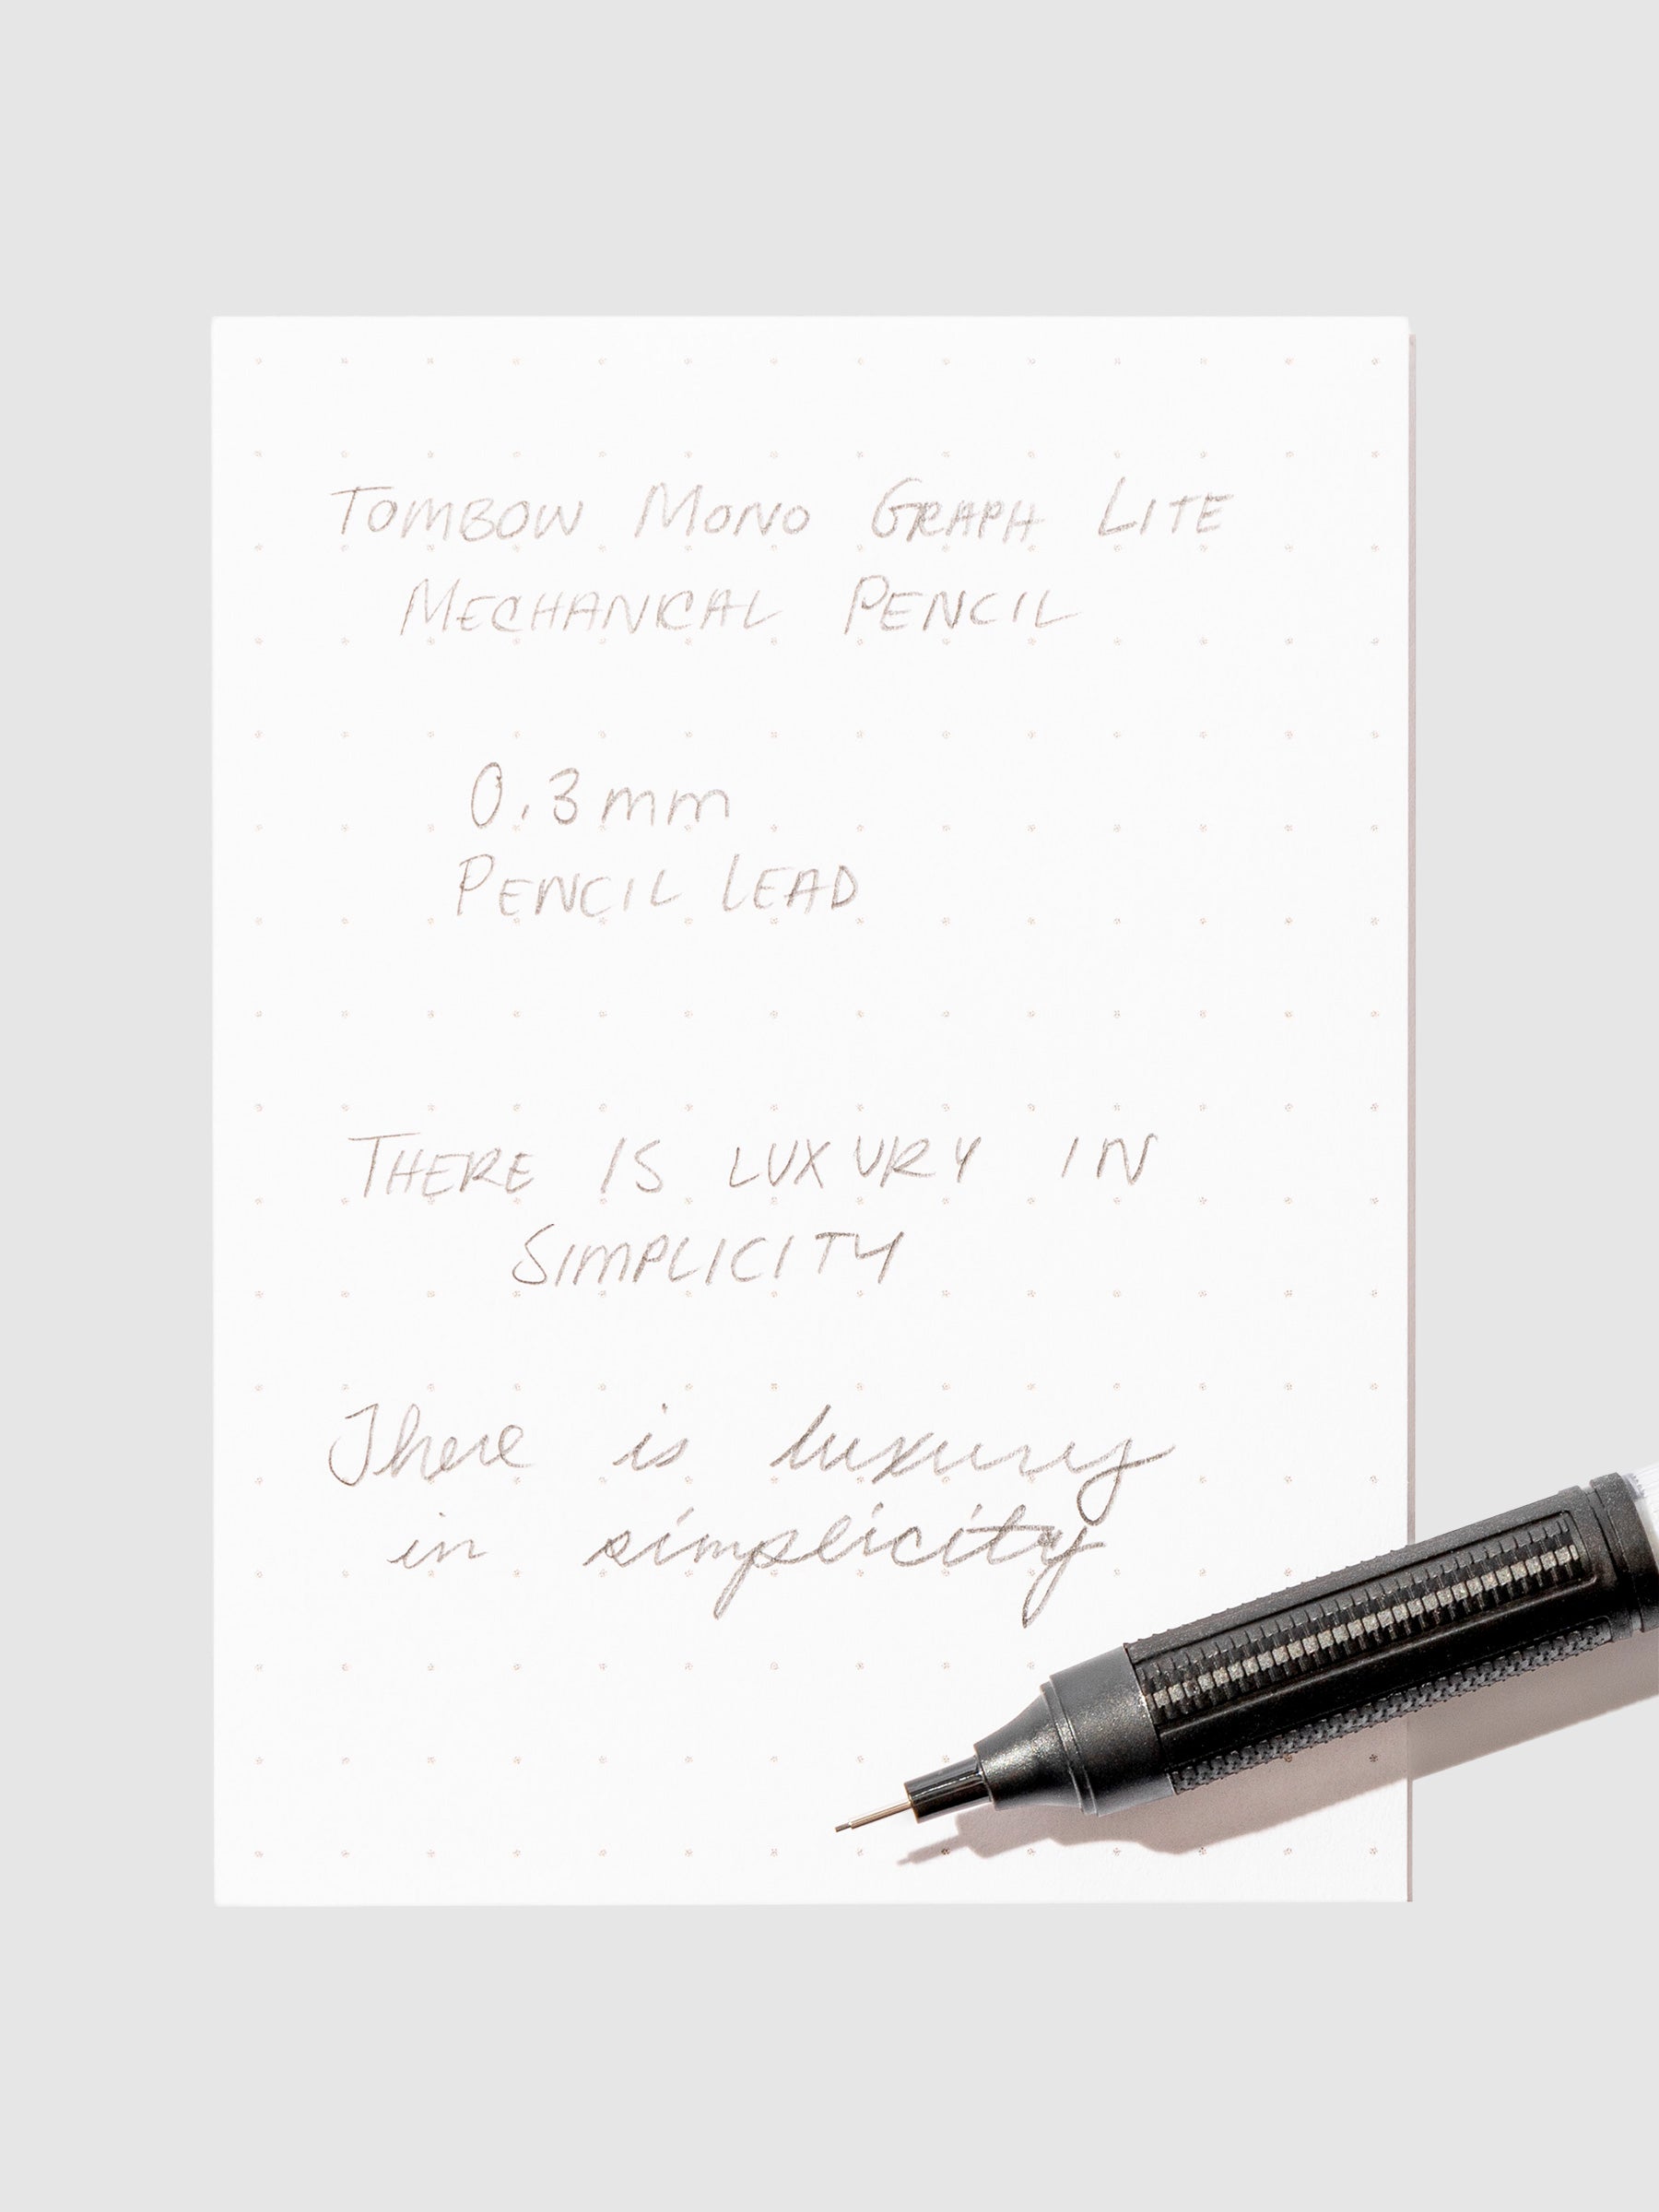 TOMBOW MONO GRAPH LITE
MECHANICAL PENCIL
0.3mm
PENCIL LEAD
THERE IS LUXURY IN
SIMPLICITY
There is luxury
in simplicity